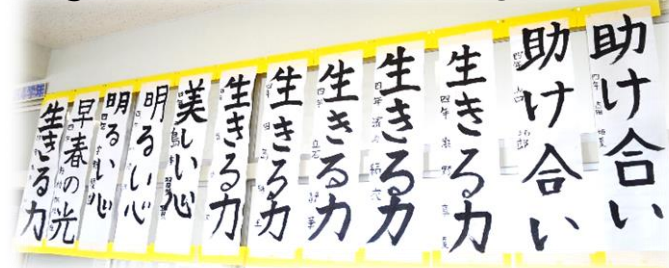 助け合い
助け合い
生きる力
四年
生きる力
四年
生きる力
生きる力
生きる力
美しい心
明るい心
明るい心
早春の光
生きる力